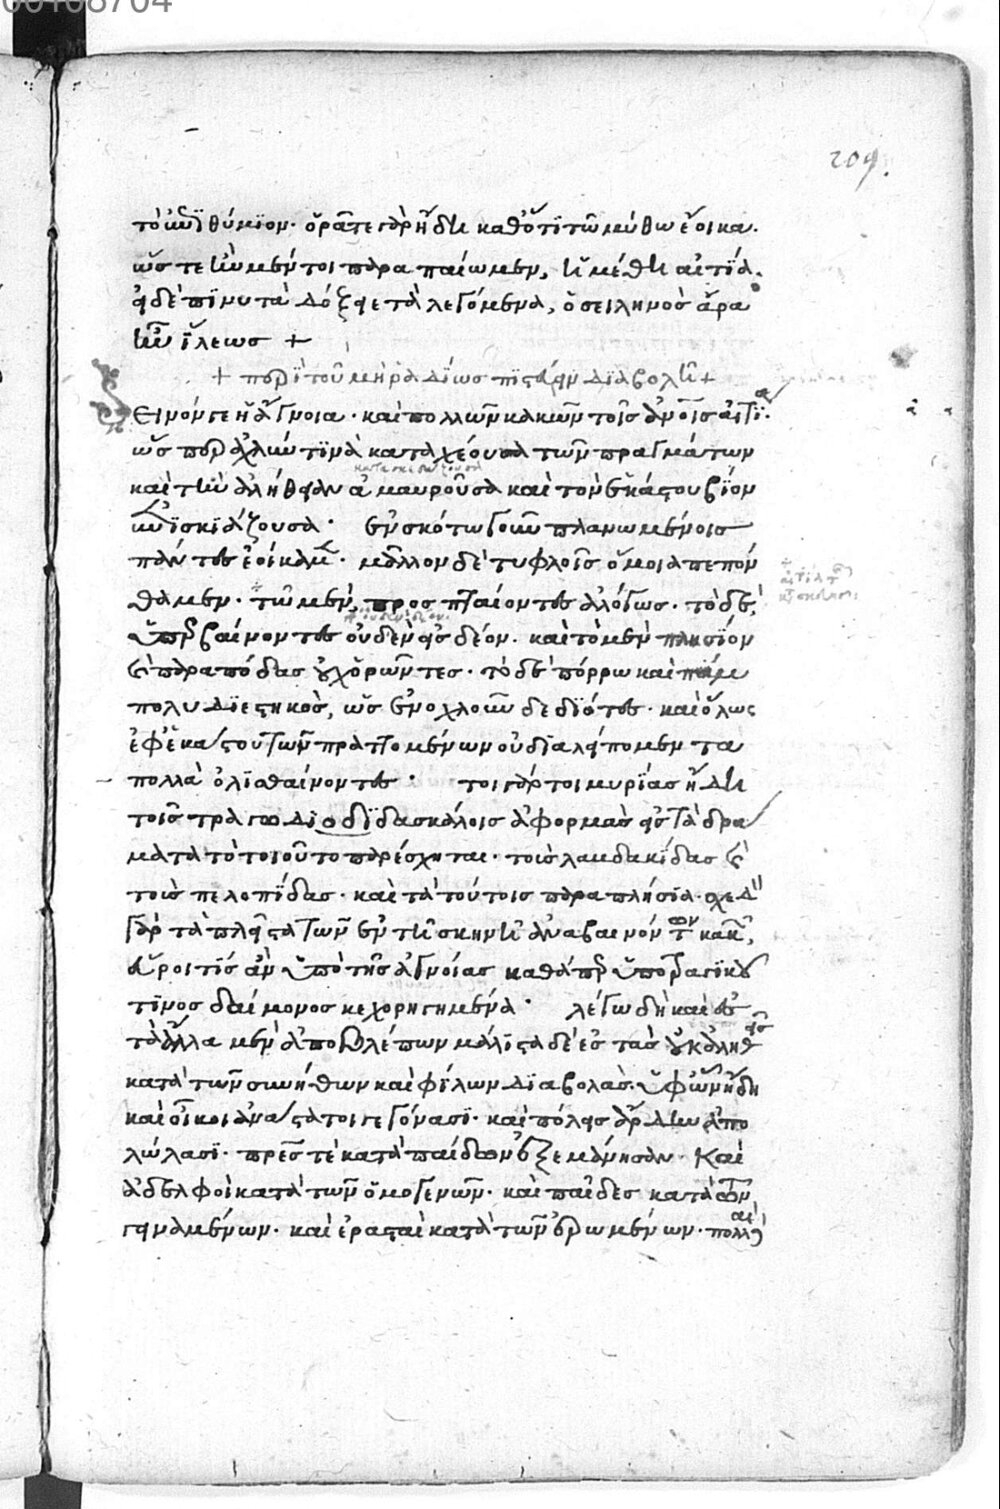 209.
τὸ ἐνθύμιον. ὁρᾶτε γὰρ ἤδη καθότι τῶ μύθω ἔοικα.
ὥστε ἢν μέντοι παραπαίωμεν, ἡ μέθη αἰτία.
εἰ δὲ πινυτὰ δόξειε τὰ λεγόμενα, ὁ σειληνὸς ἄρα
ἦν ἵλεως +
+ περὶ τοῦ μὴ ῥαδίως πιστεύειν διαβολῆ +
Δεινόν γε ἡ ἄγνοια. καὶ πολλῶν κακῶν τοῖς ἀνοις αἰτία.
ὥσπερ ἀχλύν τινα καταχέουσα τῶν πραγμάτων
κατασκιάζουσα
καὶ τὴν ἀλήθειαν ἀμαυροῦσα καὶ τὸν ἑκάστου βίον
ἐπισκιάζουσα. ἐν σκότω γοῦν πλανωμένοις
πάντες ἐοίκαμεν. μᾶλλον δὲ τυφλοῖς ὅμοια πεπόν
θαμεν. τῶ μὲν, προσπταίοντες ἀλόγως. τὸ δὲ,
ὑπερβαίνοντες οὐδὲν εἰς δέον. καὶ τὸ μὲν πλησίον
καὶ παρὰ πόδας οὐχ ὁρῶντες. τὸ δὲ πόρρω καὶ πάμ
πολυ διεστηκὸς, ὡς ἐνοχλοῦν δεδιότες. καὶ ὅλως
ἐφ' ἑκάστου τῶν πραττομένων οὐ διαλείπομεν τὰ
πολλὰ ὀλισθαίνοντες. τοιγάρτοι μυρίας ἤδη
τοῖς τραγωδιοδιδασκάλοις ἀφορμὰς εἰς τὰ δρά
ματα τὸ τοιοῦτο παρέσχηται. τοὺς λαμδακίδας καὶ
τοὺς πελοπίδας. καὶ τὰ τούτοις παραπλήσια. σχεδὸν
γὰρ τὰ πλεῖστα τῶν ἐν τῆ σκηνῆ ἀναβαινόντων κακῶν,
εὕροι τίς ἂν ὑπὸ τῆς ἀγνοίας καθάπερ ὑπὸ τραγικοῦ
τινος δαίμονος κεχορηγημένα. λέγω δὴ καὶ ἐς
τὰ ἄλλα μὲν ἀποβλέπων μάλιστα δὲ ἐς τὰς οὐκ ἀληθεῖς
κατὰ τῶν συνήθων καὶ φίλων διαβολάς. ὑφ' ὧν ἤδη
καὶ οἶκοι ἀνάστατοι γεγόνασι. καὶ πόλεις ἄρδην ἀπο
λώλασι. πρες τὲ κατὰ παίδων ἐξεμάνησαν. καὶ
ἀδελφοὶ κατὰ τῶν ὁμογενῶν. καὶ παῖδες κατὰ τῶν
γειναμένων. καὶ ἐρασταὶ κατὰ τῶν ἐρωμένων. πολλαὶ